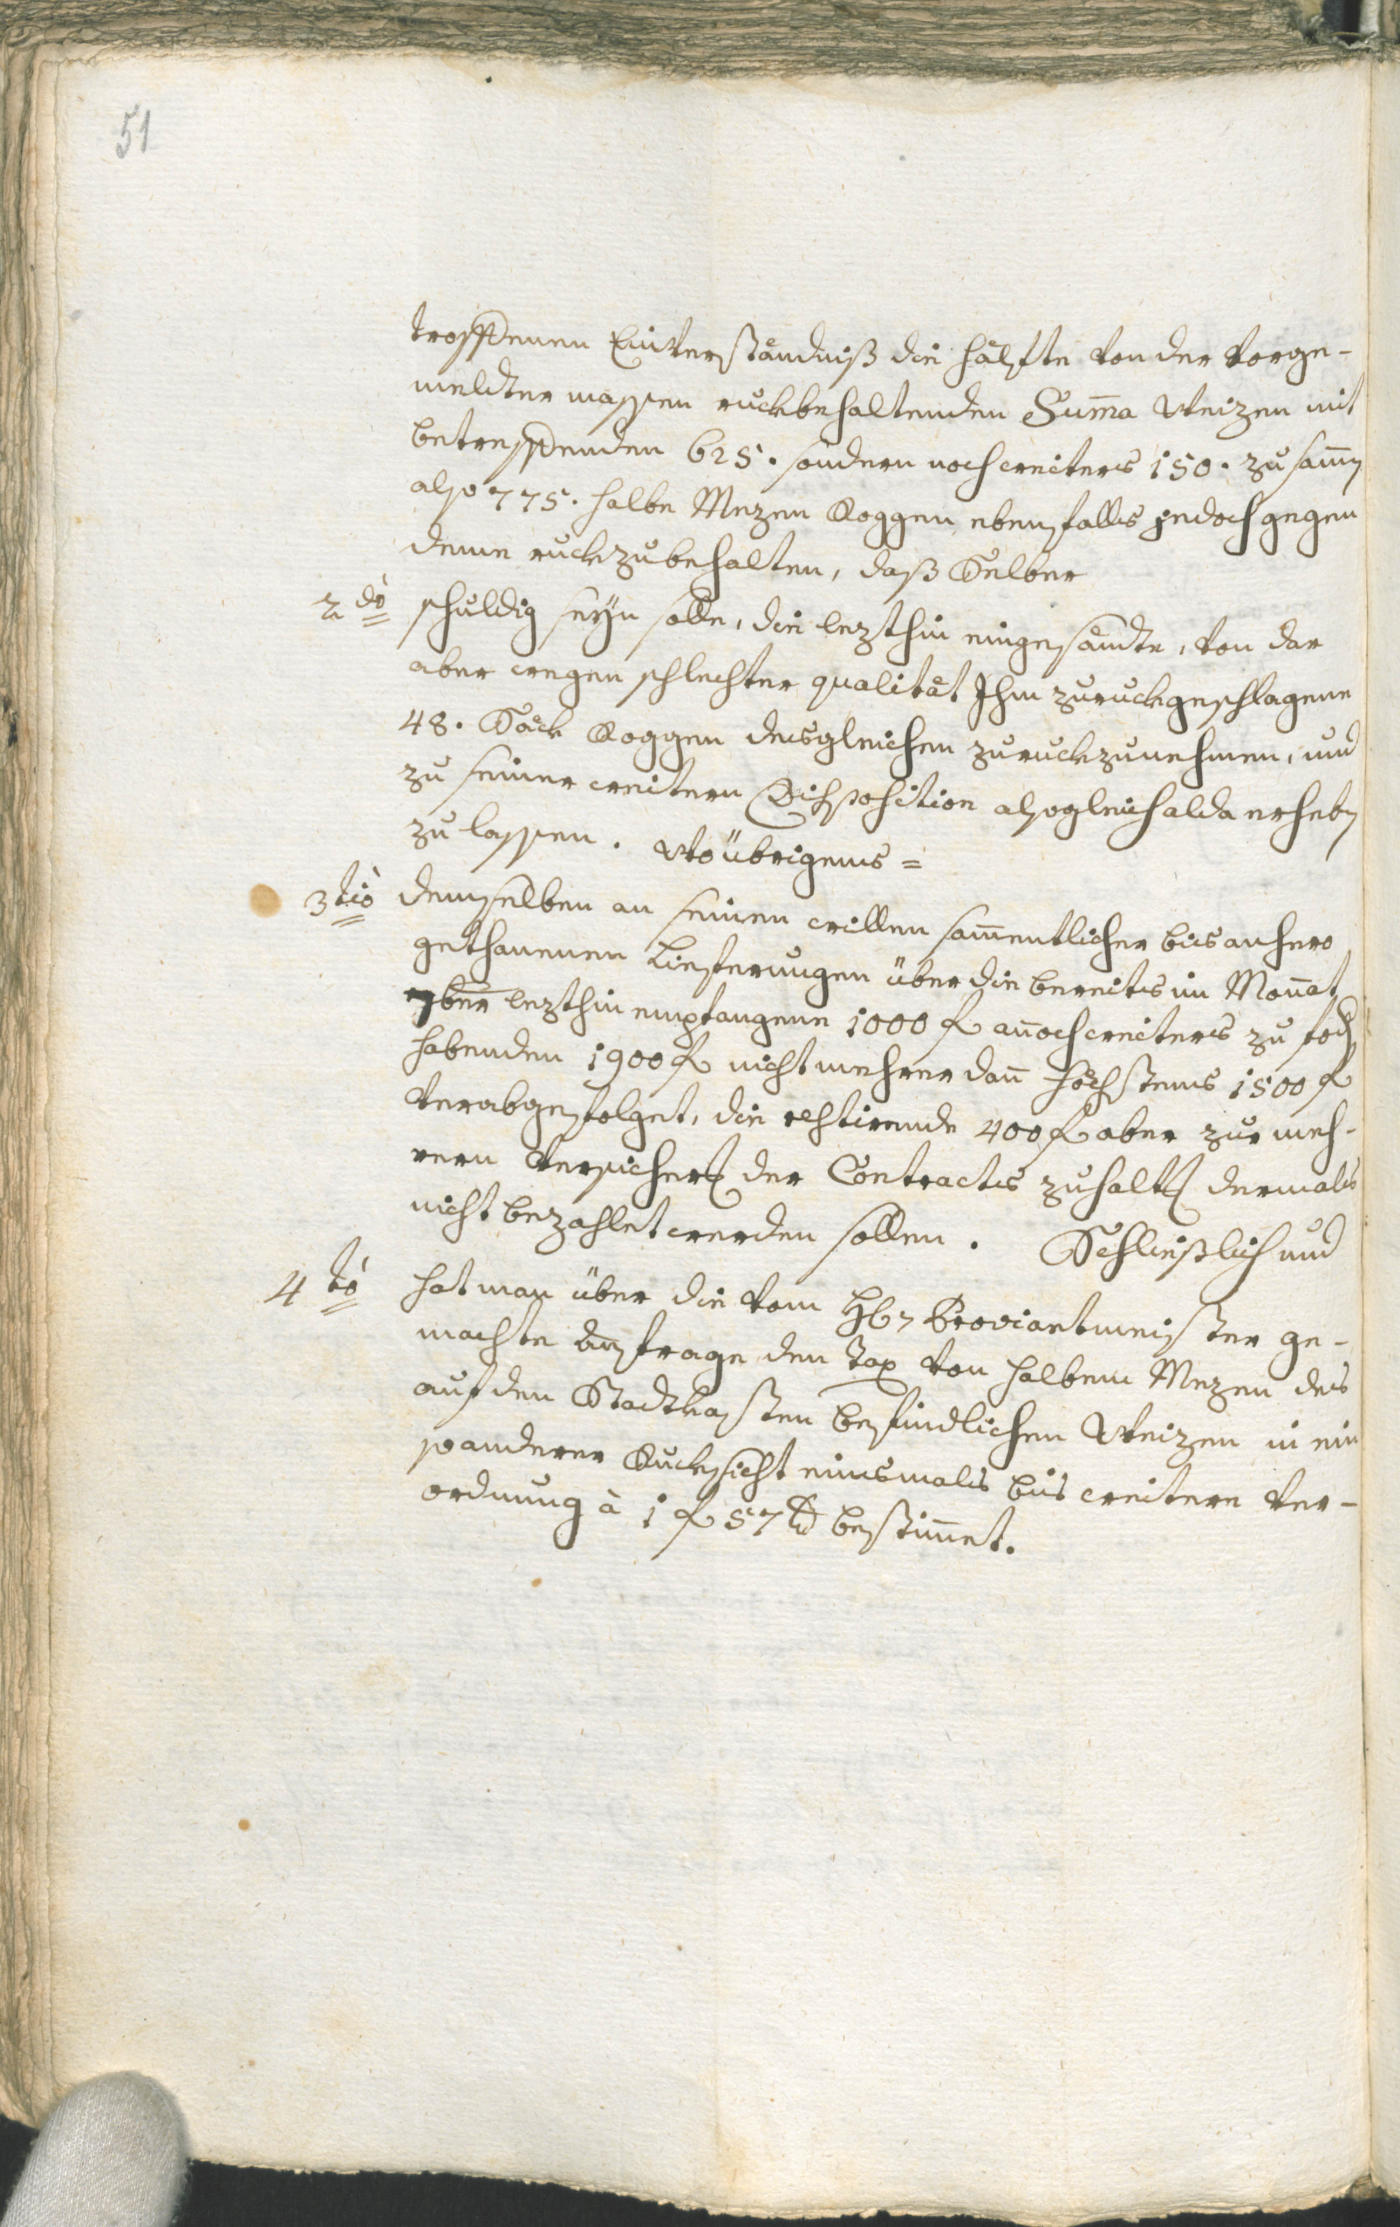 51
troffenen Einverständniß die hälfte von der vorge-
meldter massen ruckbehaltenden Suma Weizen mit
betreffenden 625. sondern noch weiters 150. zusamen
also 775. halbe Mezen Roggen ebenfalls jedoch gegen
deme ruckzubehalten, daß Selber
2do schuldig seyn solle, die lezthin eingesandte, von dar
aber wegen schlechter qualität Ihm zuruckgeschlagene
48. Säck Roggen desgleichen zuruckzunehmen, und
zu seiner weitern Disposition alsogleich alda erheben
zu lassen. Wo übrigens =
3tio demselben an seinen willen samentlicher bis anhero
gethanenen Lieferungen über die bereits im Monat
7ber lezthin empfangene 1000 f anoch weiters zu fod
habenden 1900 f nicht mehrer dan höchstens 1500 f
verabgefolget, die restirende 400 f aber zur meh-
rern Versicherung der Contracts zuhaltung dermals
nicht bezahlet werden sollen. Schließlich und
4to hat man über die vom H. Proviantmeister ge-
machte Anfrage den Tax von halbem Mezen des
auf den Stadtkasten befindlichen Weizen in ein
so anderer Rucksicht einsmals bis weitere Ver-
ordnung à 1 f 57 bestimet.